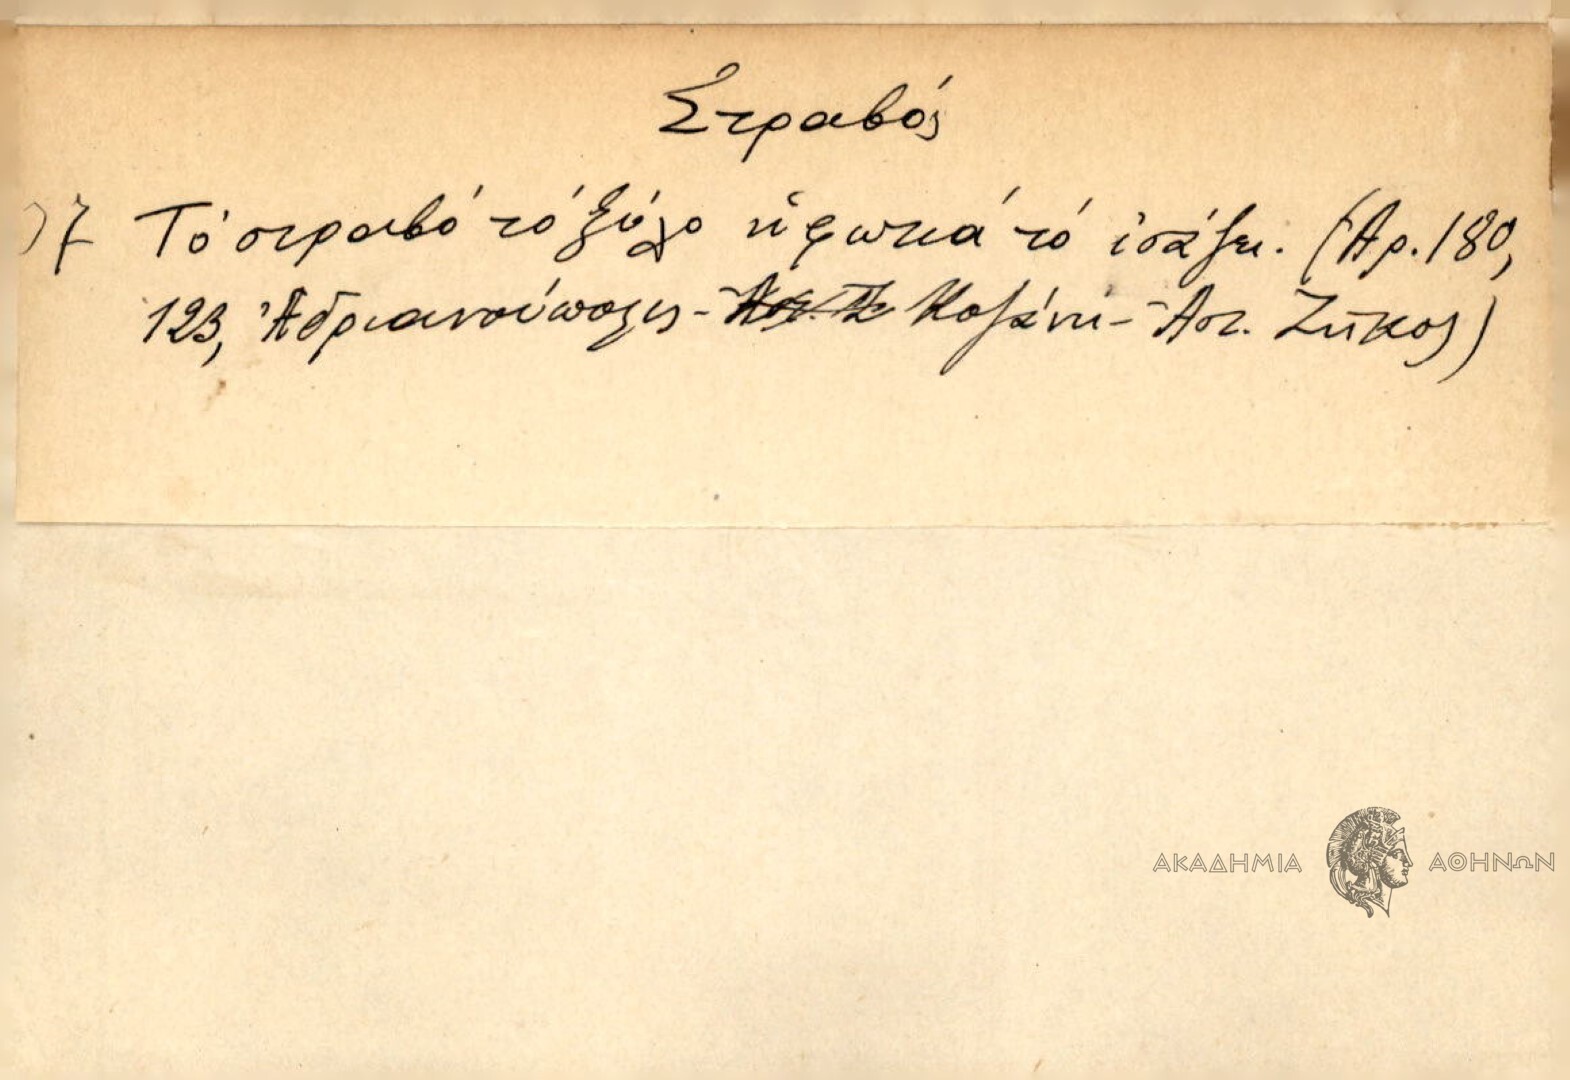 Στραβός
)7 Τό στραβό τό ξύλο ἡ φωτιά τό ἰσάζει. (Ἀρ. 180,
123, Ἀδριανούπολις - Κοζάνη - Ἀστ. Ζῆκος)
ΑΚΑΔΗΜΙΑ ΑΘΗΝΩΝ